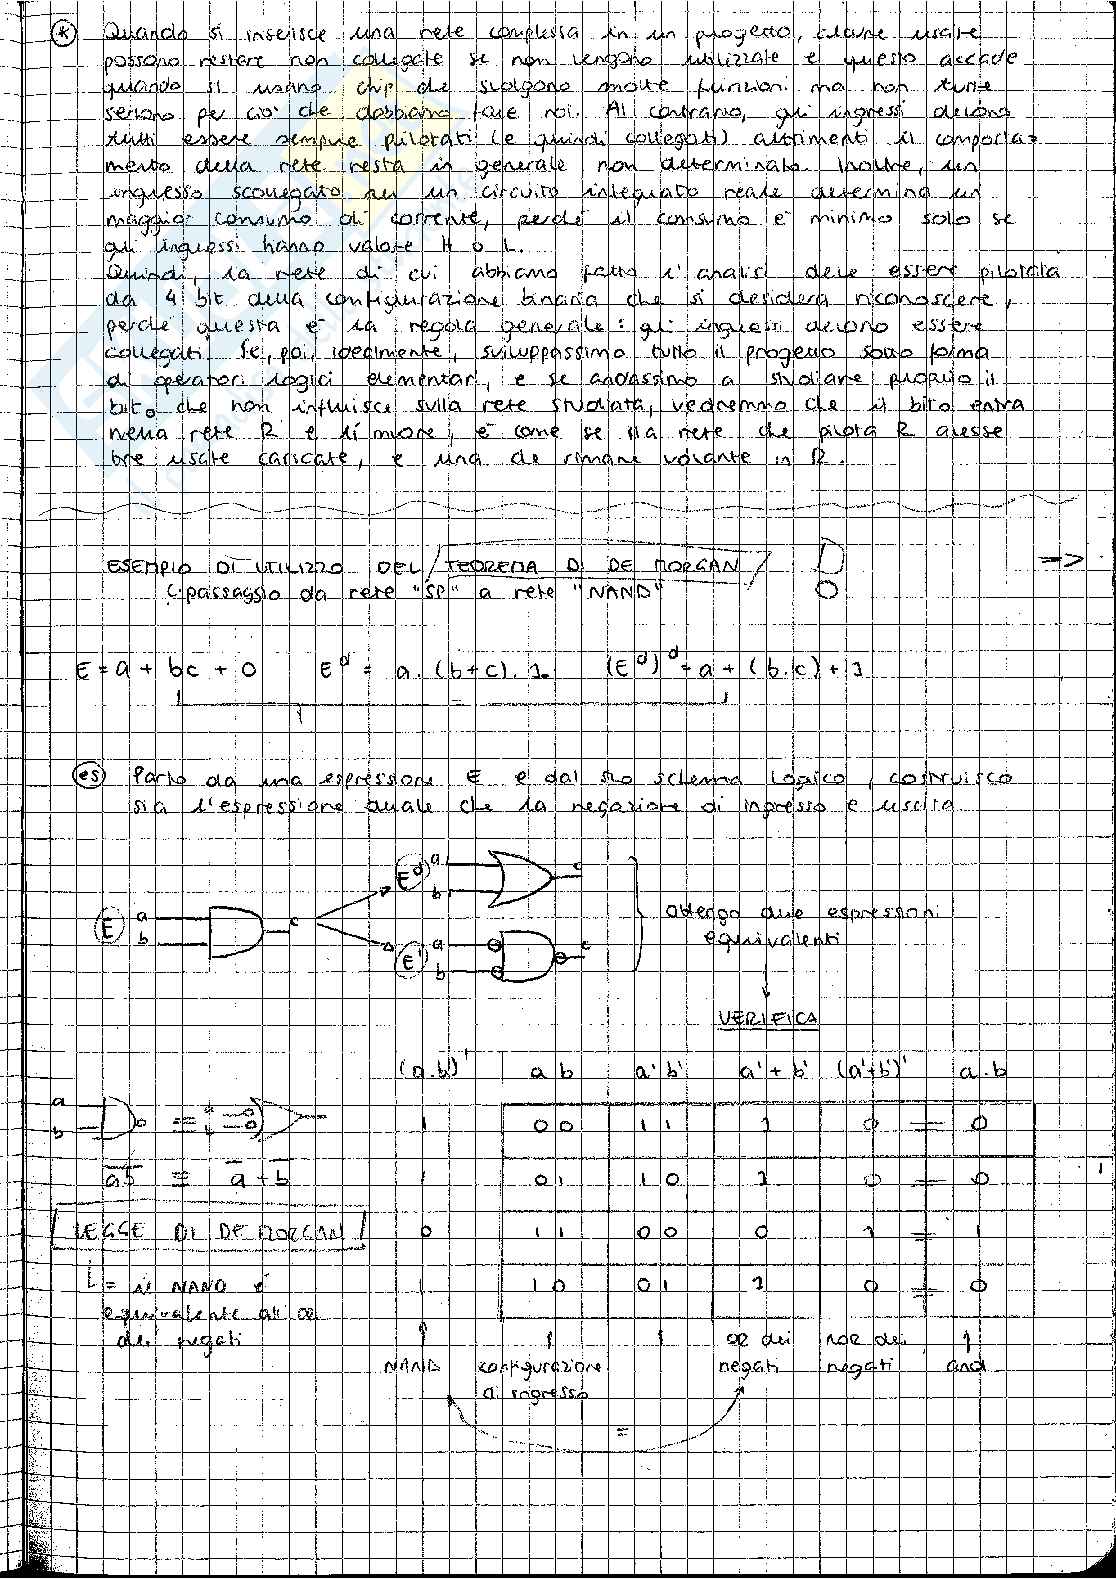 (*) Quando si inserisce una rete complessa in un progetto, alcune uscite
possono restare non collegate se non vengono utilizzate e questo accade
quando si usano chip che svolgono molte funzioni ma non tutte
servono per ciò che dobbiamo fare noi. Al contrario, gli ingressi devono
tutti essere sempre pilotati (e quindi collegati) altrimenti il comporta=
mento della rete resta in generale non determinato. Inoltre, un
ingresso scollegato su un circuito integrato reale determina un
maggior consumo di corrente, perché il consumo è minimo solo se
gli ingressi hanno valore H o L.
Quindi, la rete di cui abbiamo fatto l'analisi deve essere pilotata
da 4 bit della configurazione binaria che si desidera riconoscere,
perché questa è la regola generale: gli ingressi devono essere
collegati. Se, poi, idealmente, sviluppassimo tutto il progetto sotto forma
di operatori logici elementari, e se andassimo a studiare proprio il
bit0 che non influisce sulla rete studiata, vedremmo che il bit0 entra
nella rete R e lì muore, è come se la rete che pilota R avesse
tre uscite caricate, e una che rimane volante in R.
ESEMPIO DI UTILIZZO DEL TEOREMA DI DE MORGAN !
(passaggio da rete "SP" a rete "NAND") =>
E = a + bc + 0 E^d = a . (b+c) . 1. (E^d)^d = a + (b.c) + 1
(es) Parto da una espressione E e dal suo schema logico, costruisco
sia l'espressione duale che la negazione di ingresso e uscita.
E a b c
E^d a b c
E' a b c
ottengo due espressioni
equivalenti
VERIFICA
(a.b)' a b a' b' a' + b' (a'+b')' a.b
a b ≡ a b
1 0 0 1 1 1 0 = 0
a̅b̅ ≡ a̅ + b̅ 1 0 1 1 0 1 0 = 0
LEGGE DI DE MORGAN 0 1 1 0 0 0 1 = 1
1 1 0 0 1 1 0 = 0
= il NAND è
equivalente all'OR
dei negati
NAND
configurazione
di ingresso
OR dei
negati
NOR dei
negati
and
=